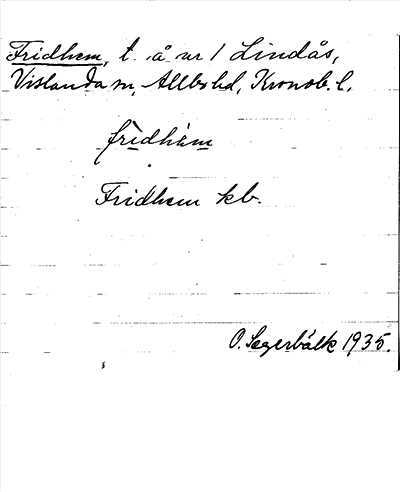 Fridhem, t. å nr 1 Lindås,
Vislanda sn, Allbo hd, Kronob. l.
fridhèm
Fridhem kb.
O. Segerbäck 1935.